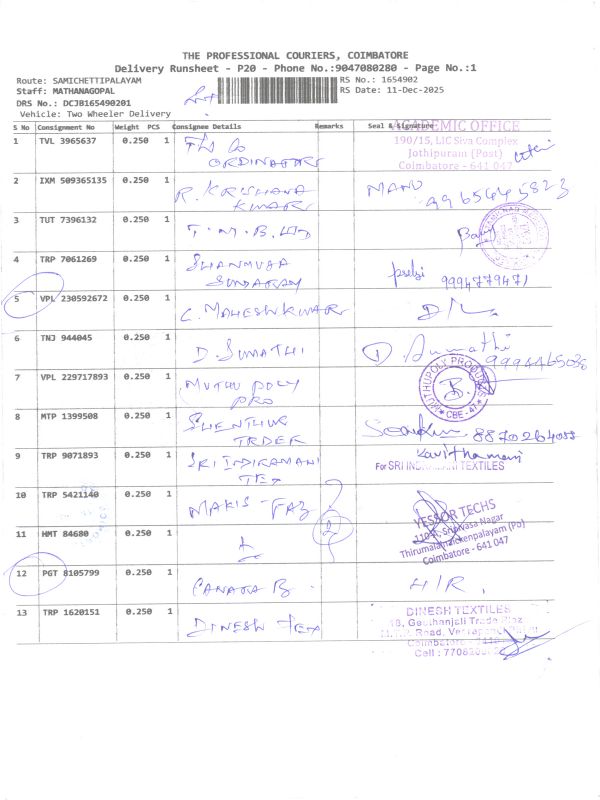 THE PROFESSIONAL COURIERS, COIMBATORE
Delivery Runsheet - P20 - Phone No.:9047080280 - Page No.:1
Route: SAMICHETTIPALAYAM
RS No.: 1654902
Staff: MATHANAGOPAL
RS Date: 11-Dec-2025
DRS No.: DCJB165490201
Vehicle: Two Wheeler Delivery
S No Consignment No Weight PCS Consignee Details Remarks Seal & Signature
ACADEMIC OFFICE
1 TVL 3965637 0.250 1
ORDINATORS
190/15, LIC Siva Complex
Jothipuram (Post)
Coimbatore - 641 047
2 IXM 509365135 0.250 1 R. KRISHANA
KUMAR
MANO
9965645823
3 TUT 7396132 0.250 1 T.M.B. LTD
4 TRP 7061269 0.250 1 SHANMUGA
SUNDARAM
9994779471
5 VPL 230592672 0.250 1 C. MAHESH KUMAR D/L
6 TNJ 944045 0.250 1 D. SUMATHI D. Sumathi
7 VPL 229717893 0.250 1 MUTHU POLY
PRO
MUTHUPOLY PRODUCTS
CBE-47
8 MTP 1399508 0.250 1 SHENTHUR
TRDER
9 TRP 9071893 0.250 1 SRI INDIRAMANI
TEX
Kavithamani
For SRI INDIRAMANI TEXTILES
10 TRP 5421140 0.250 1 MAKIS
YESSOR TECHS
110-A, Srinivasa Nagar
Thirumalainaickenpalayam (Po)
Coimbatore - 641 047
11 HMT 84680 0.250 1
12 PGT 8105799 0.250 1 CANARA B H/R
13 TRP 1620151 0.250 1 DINESH TEX
DINESH TEXTILES
Geethanjali Trade Plaz
Road,
Coimbatore
Cell : 77082